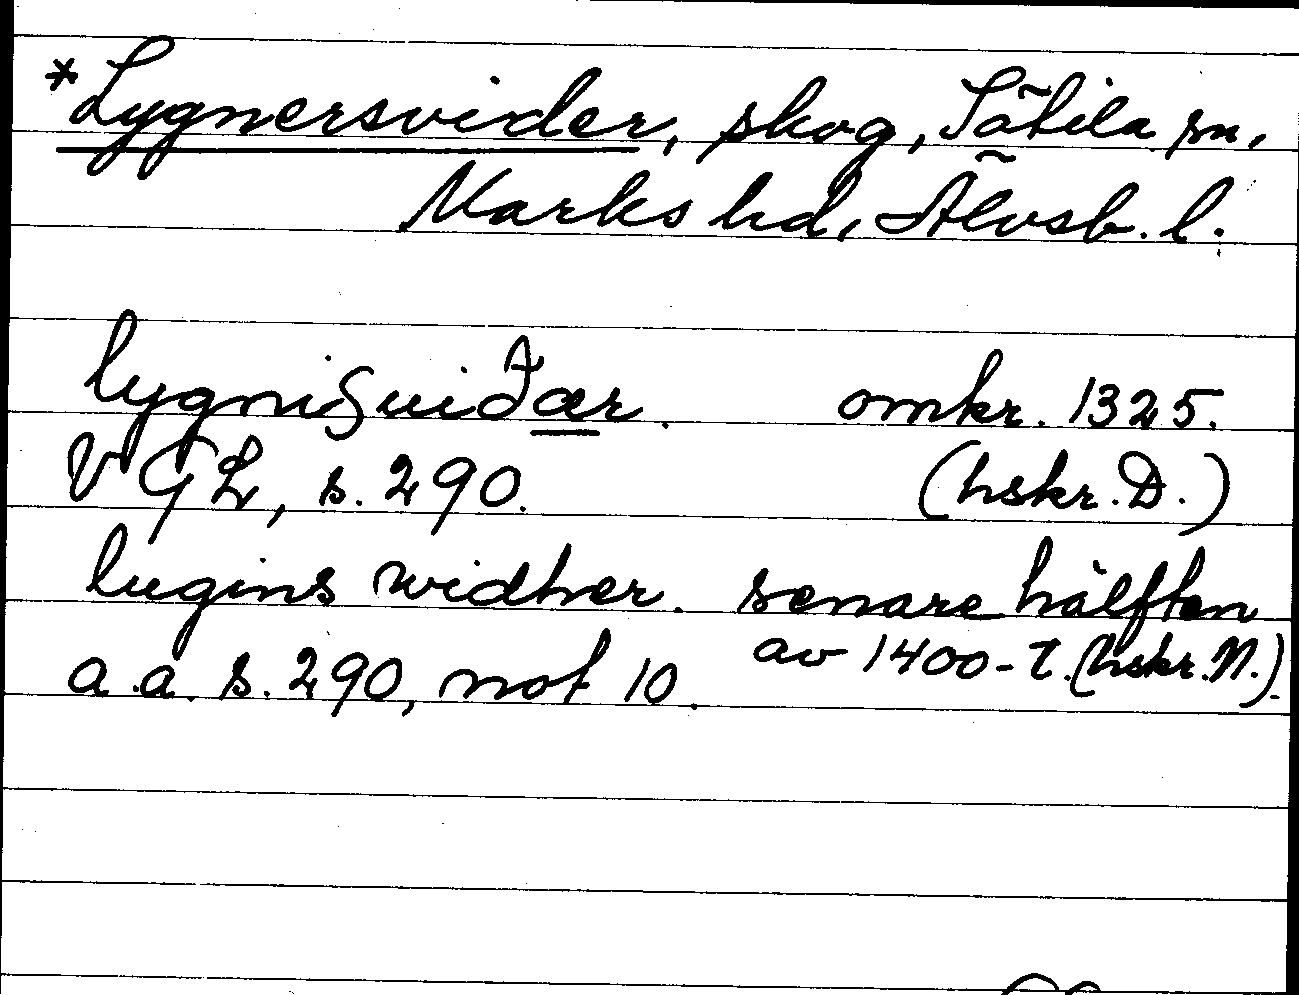 *Lygnersvider, skog, Sätila sn,
Marks hd, Älvsb. l.
lygnisuiðær. omkr. 1325.
VGL, s. 290. (hskr. D.)
lugins widher. senare hälften
a.a. s. 290, not 10. av 1400-t. (hskr. N.).